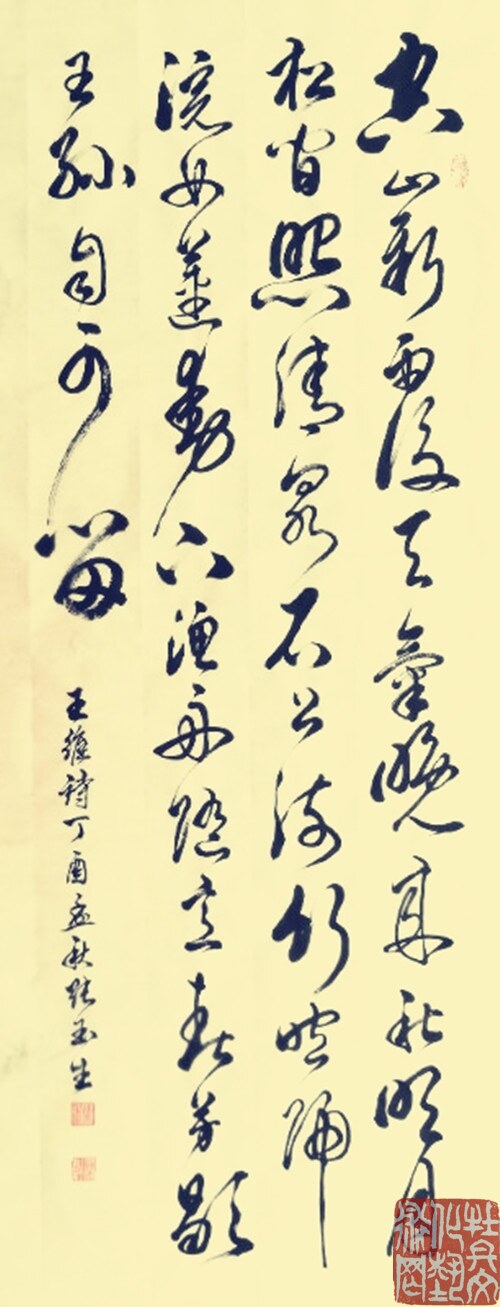 空山新雨後天氣晚来秋明月
松间照清泉石上流竹喧歸
浣女蓮動下漁舟随意春芳歇
王孫自可留
王維詩丁酉孟秋张玉生